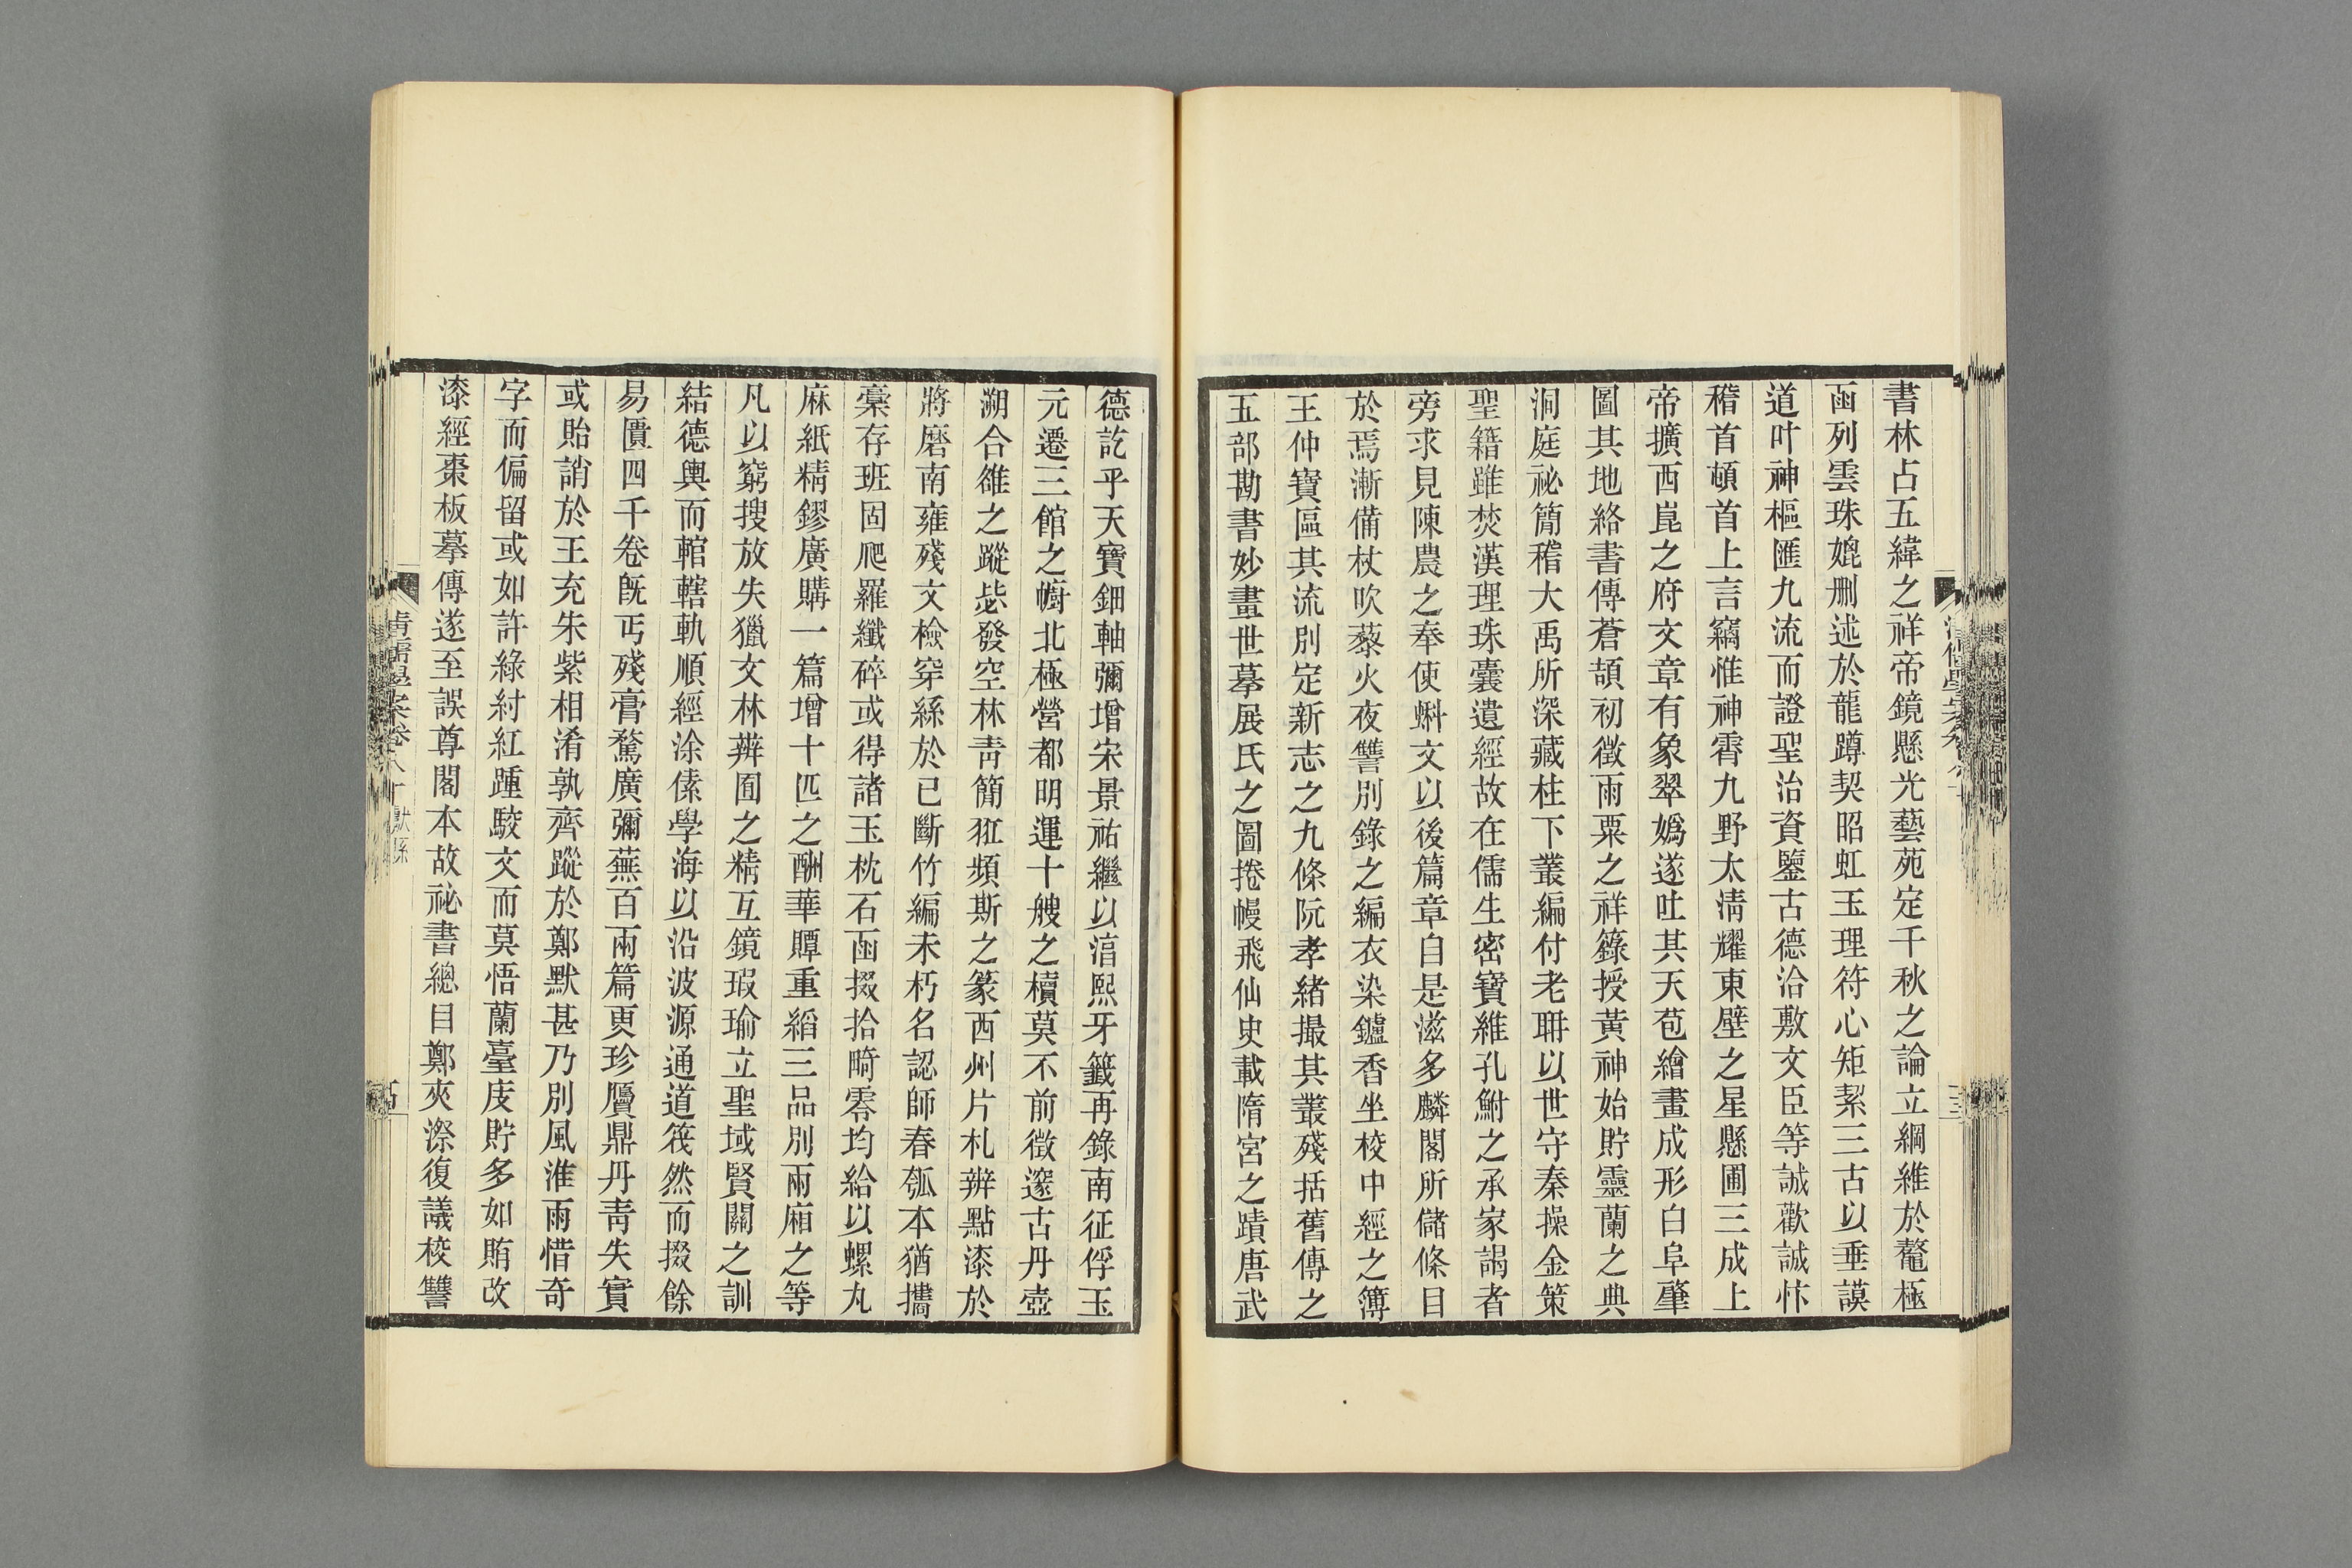 書林占五緯之祥帝鏡懸光藝苑定千秋之論立綱維於鼇極
函列雲珠媲刪述於龍蹲契昭虹玉理符心矩絜三古以垂謨
道叶神樞匯九流而證聖治資鑒古德洽敷文臣等誠歡誠忭
稽首頓首上言竊惟神霄九野太淸耀東壁之星懸圃三成上
帝擴西崑之府文章有象翠嬀遂吐其天苞繪畫成形白阜肇
圖其地絡書傳蒼頡初徵雨粟之祥籙授黃神始貯靈蘭之典
洞庭祕簡稽大禹所深藏柱下叢編付老耼以世守秦操金策
聖籍雖焚漢理珠囊遺經故在儒生密寶維孔鮒之承家謁者
旁求見陳農之奉使蝌文以後篇章自是滋多麟閣所儲條目
於焉漸備杖吹藜火夜讐別錄之編衣染鑪香坐校中經之簿
王仲寶區其流別定新志之九條阮孝緒撮其叢殘括舊傳之
五部勘書妙畫世摹展氏之圖捲幔飛仙史載隋宮之蹟唐武
德訖乎天寶鈿軸彌增宋景祐繼以淳熙牙籤再錄南征俘玉
元遷三館之櫥北極營都明運十艘之櫝莫不前徵邃古丹壺
溯合雒之蹤毖發空林靑簡狉頻斯之篆西州片札辨點漆於
將磨南雍殘文檢穿絲於已斷竹編未朽名認師春瓠本猶攜
稾存班固爬羅纖碎或得諸玉枕石函掇拾畸零均給以螺丸
麻紙精鏐廣購一篇增十匹之酬華贉重縚三品別兩廂之等
凡以窮搜放失獵文林辨囿之精互鏡瑕瑜立聖域賢關之訓
結德輿而輨轄軌順經涂傃學海以沿波源通道筏然而掇餘
易匱四千卷旣丐殘膏騖廣彌蕪百兩篇更珍贋鼎丹靑失實
或貽誚於王充朱紫相淆孰齊蹤於鄭默甚乃別風淮雨惜奇
字而偏留或如許綠紂紅踵駮文而莫悟蘭臺庋貯多如賄改
漆經棗板摹傳遂至誤尊閣本故祕書總目鄭夾漈復議校讐